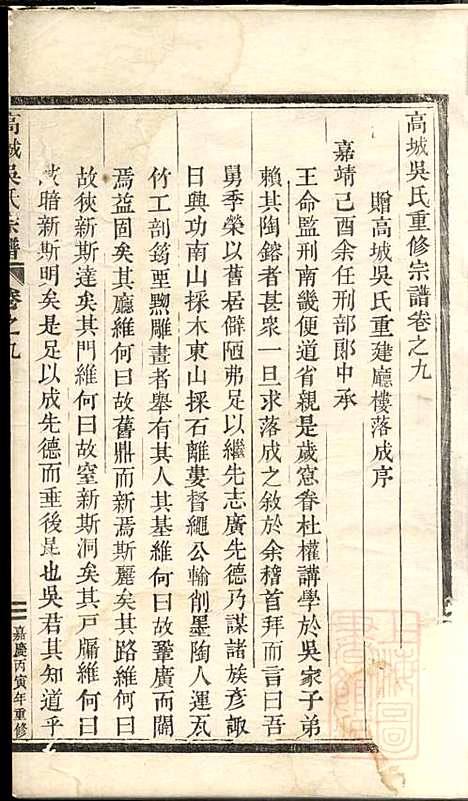 高城吳氏重修宗譜卷之九
贈高城吳氏重建廳樓落成序
嘉靖己酉余任刑部郎中承
王命監刑南畿便道省親是歲窓眷杜權講學於吳家子弟
賴其陶鎔者甚衆一旦求落成之敘於余稽首拜而言曰吾
舅季榮以舊居僻陋弗足以繼先志廣先德乃謀諸族彥諏
日興功南山採木東山採石離婁督繩公輸削墨陶人運瓦
竹工剖筠堊黝雕畫者舉有其人其基維何曰故鞏廣而闊
焉益固矣其廳維何曰故舊鼎而新焉斯麗矣其路維何曰
故狹新斯達矣其門維何曰故窒新斯洞矣其戸牖維何曰
故暗新斯明矣是足以成先德而垂後昆也吳君其知道乎
高城吳氏宗譜
卷之九
嘉慶丙寅年重修
上海圖書館藏